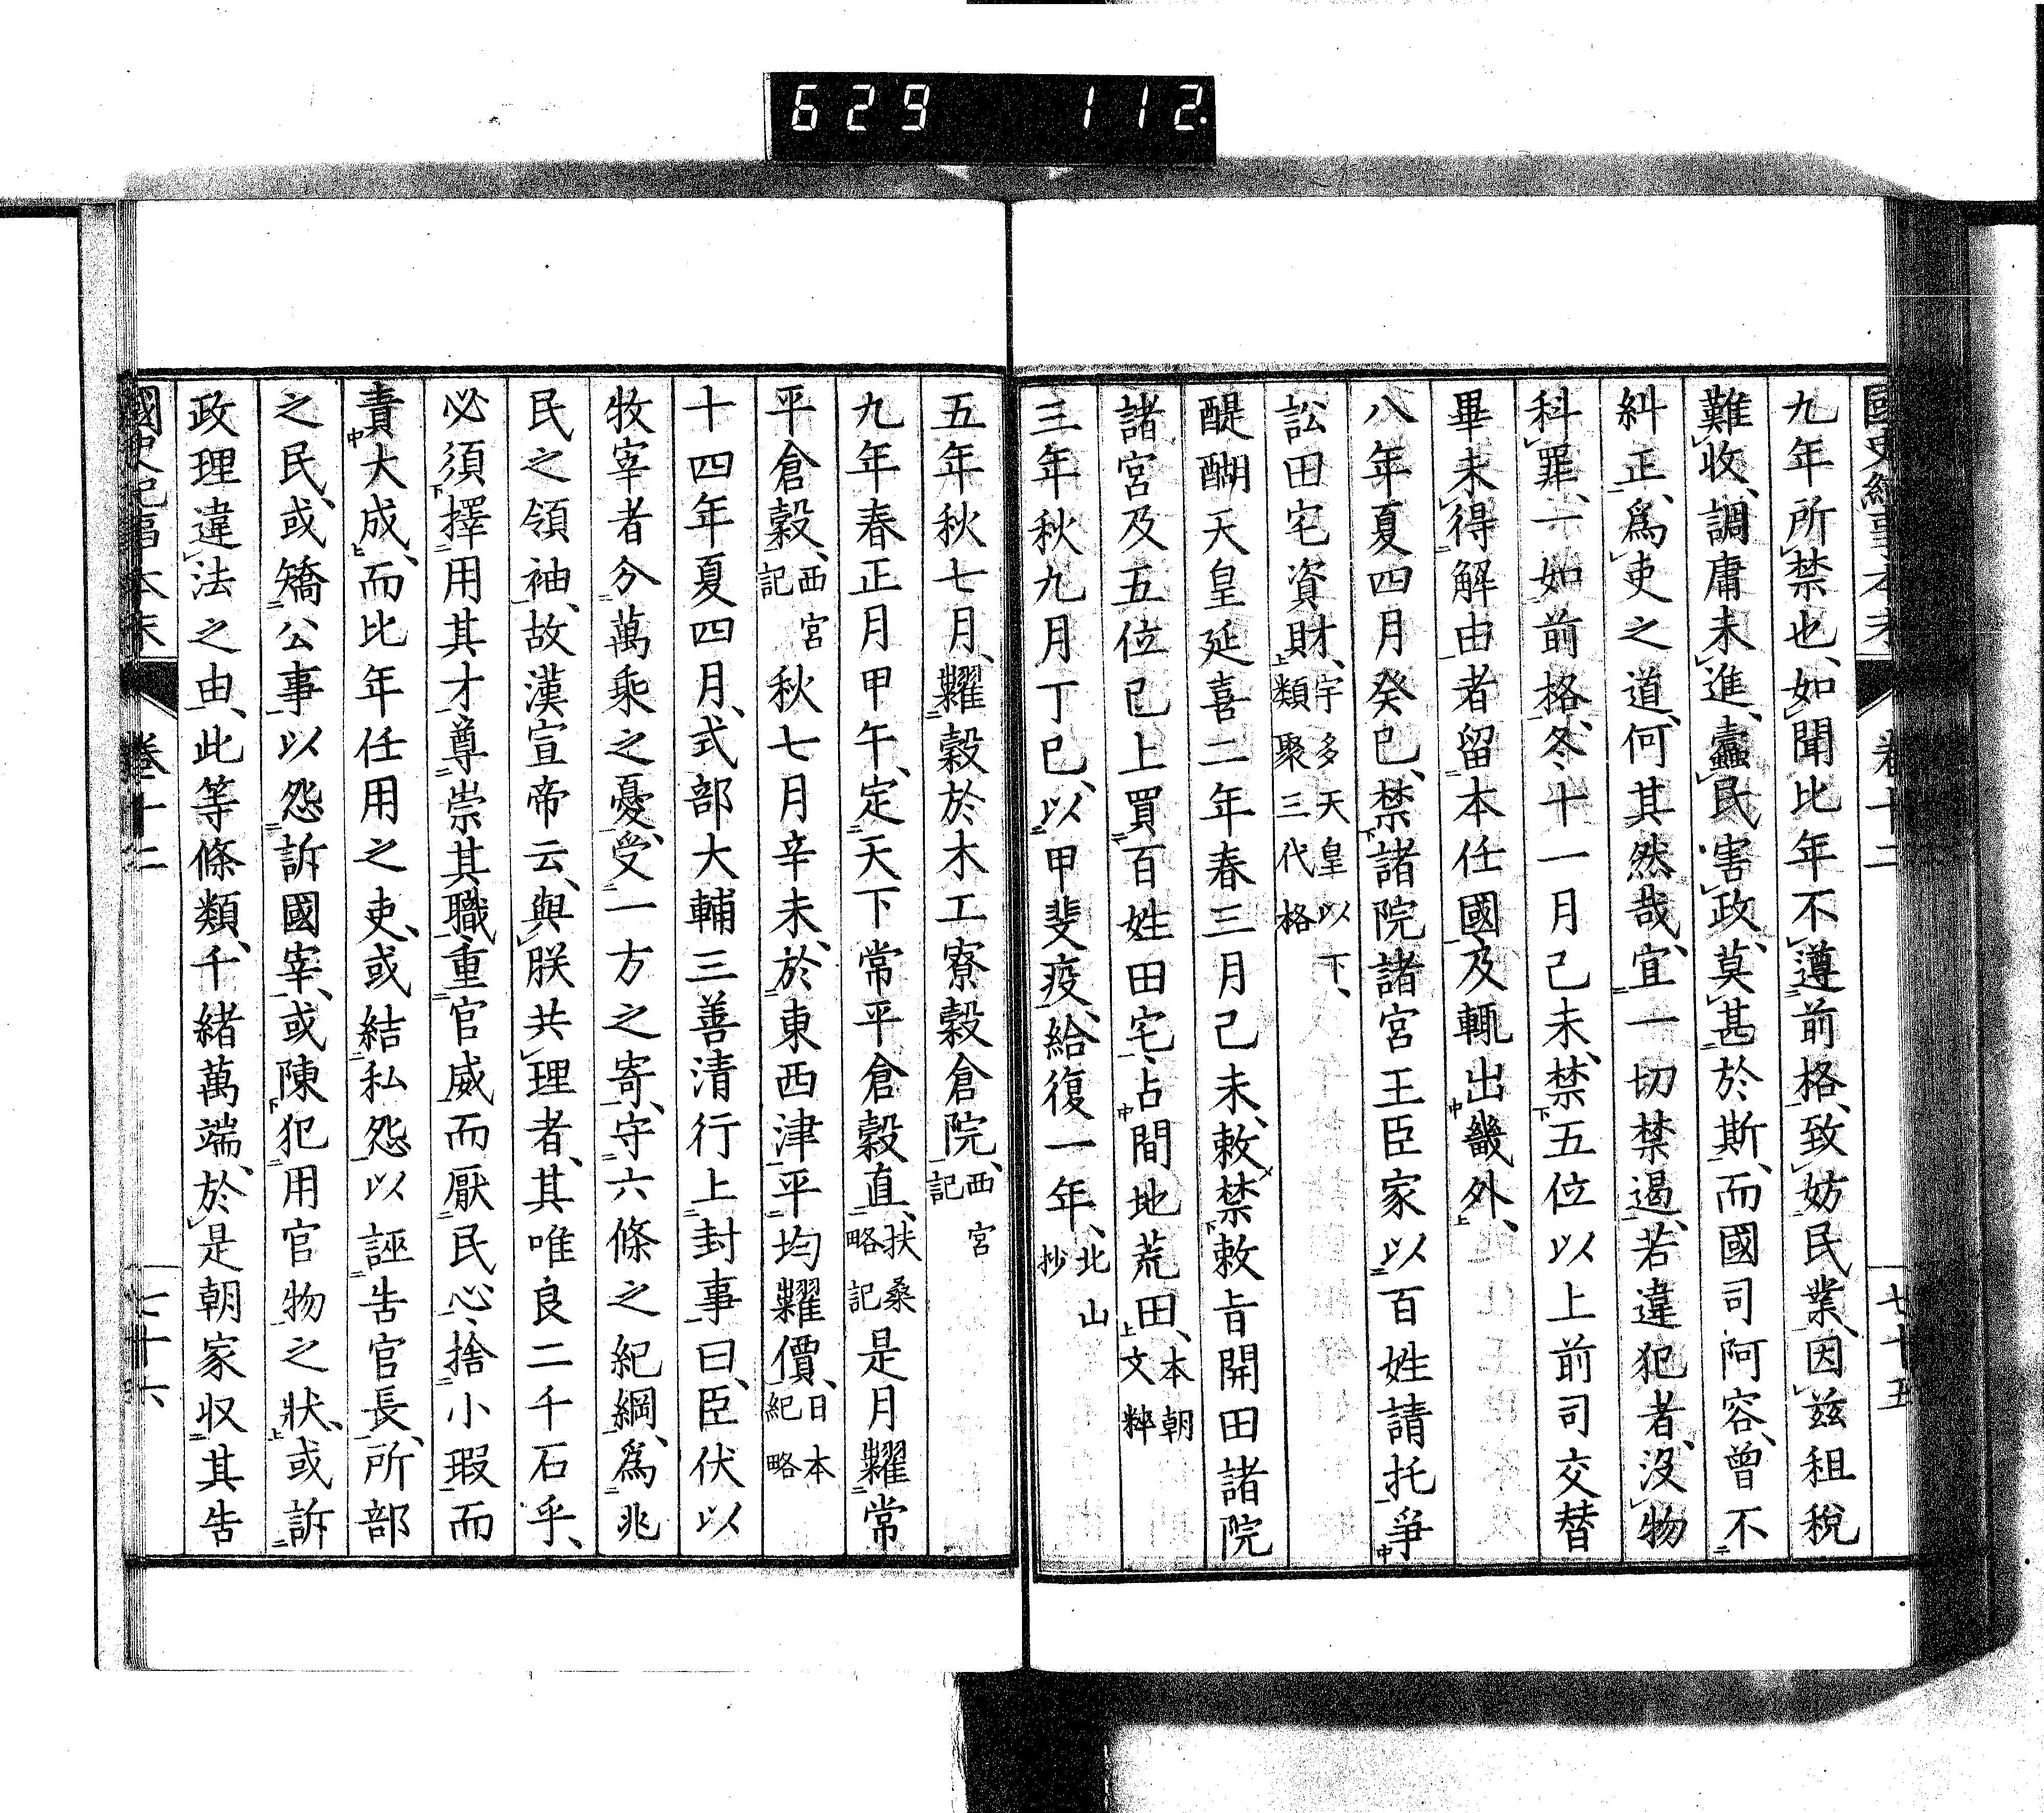 629 112.
國史紀事本末 卷十二 七十五
九年所禁也、如聞比年不遵前格、致妨民業、因茲租稅
難收、調庸未進、蠹民害政、莫甚於斯、而國司阿容、曾不
糾正、爲吏之道、何其然哉、宜一切禁遏、若違犯者、沒物
科罪、一如前格、冬十一月己未、禁五位以上前司交替
畢未得解由者留本任國及輒出畿外、
八年夏四月癸巳、禁諸院諸宮王臣家以百姓請托爭
訟田宅資財、宇多天皇以下、類聚三代格
醍醐天皇延喜二年春三月己未、敕禁敕旨開田諸院
諸宮及五位已上買百姓田宅、占間地荒田、本朝文粹
三年秋九月丁巳、以甲斐疫、給復一年、北山抄
五年秋七月、糶穀於木工寮穀倉院、西宮記
九年春正月甲午、定天下常平倉穀直、扶桑略記是月糶常
平倉穀、西宮記秋七月辛未、於東西津平均糶價、日本紀略
十四年夏四月、式部大輔三善清行上封事曰、臣伏以
牧宰者分萬乘之憂、受一方之寄、守六條之紀綱、爲兆
民之領袖、故漢宣帝云、與朕共理者、其唯良二千石乎、
必須擇用其才、尊崇其職、重官威而厭民心、捨小瑕而
責大成、而比年任用之吏、或結私怨以誣告官長、所部
之民、或矯公事以怨訴國宰、或陳犯用官物之狀、或訴
政理違法之由、此等條類、千緒萬端、於是朝家收其告
國史紀事本末 卷十二 七十六